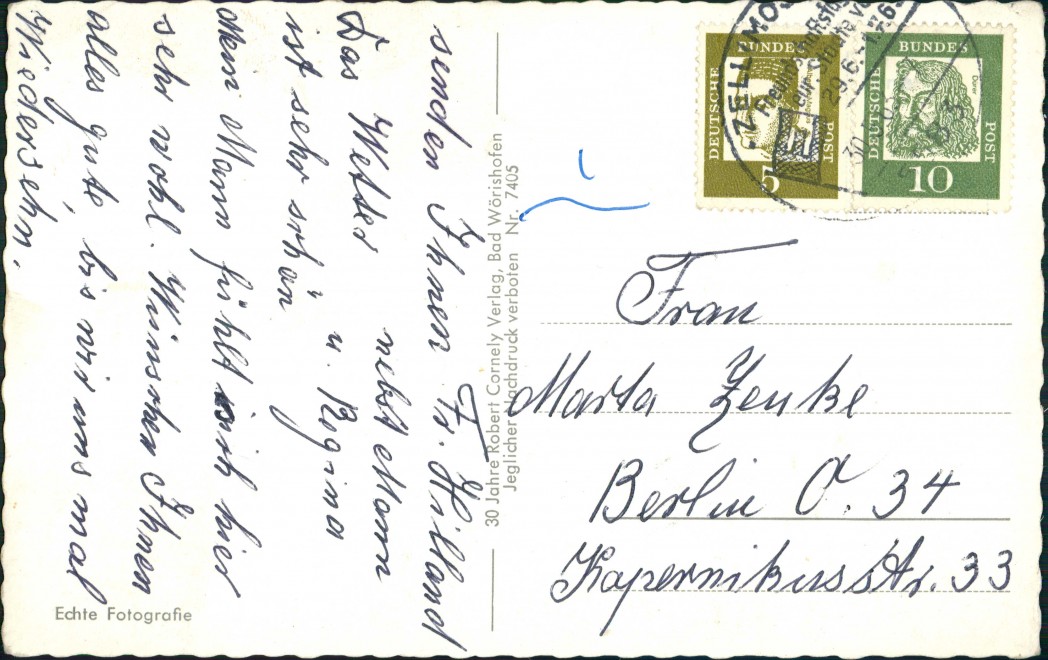 senden Ihnen Fr. Hilland
Das Wetter nebst Mann
ist sehr schön u. Regina
Mein Mann fühlt sich hier
sehr wohl. Wünschen Ihnen
alles gute, bis wir uns mal
Wiedersehn.
Echte Fotografie
30 Jahre Robert Cornely Verlag, Bad Wörishofen
Jeglicher Nachdruck verboten Nr. 7405
ZELL/MOS
29.6.
DEUTSCHE BUNDES POST
5
DEUTSCHE BUNDES POST
Dürer
10
Frau
Marta Zenke
Berlin O. 34
Kopernikusstr. 33